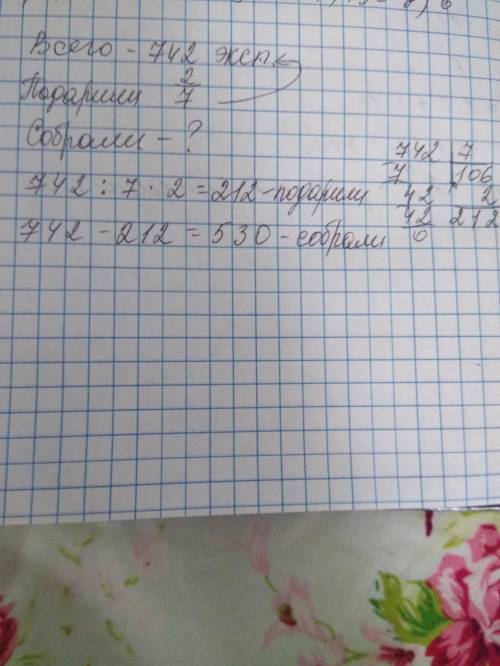 Всего - 742 эксп.
Подарили 2/7
Собрали - ?
742 : 7 · 2 = 212 - подарили
742 - 212 = 530 - собрали
742 7
7 106
42 2
42 212
0